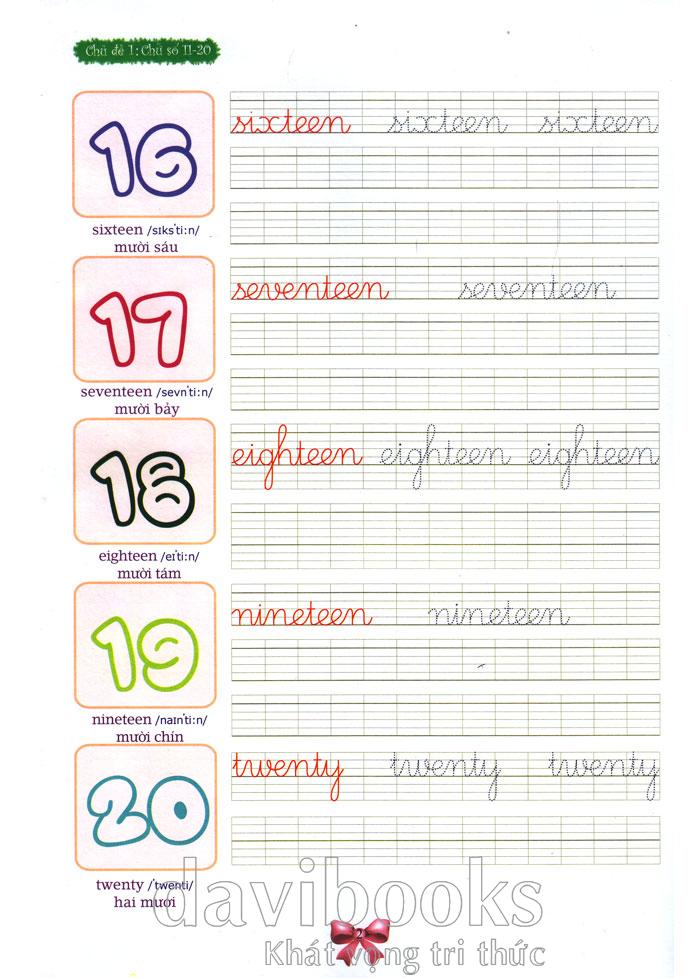 Chủ đề 1: Chữ số 11-20
16
sixteen sixteen sixteen
sixteen /sɪksˈtiːn/
mười sáu
17
seventeen seventeen
seventeen /sevnˈtiːn/
mười bảy
18
eighteen eighteen eighteen
eighteen /eɪˈtiːn/
mười tám
19
nineteen nineteen
nineteen /naɪnˈtiːn/
mười chín
20
twenty twenty twenty
twenty /ˈtwenti/
hai mươi
davibooks
2
Khát vọng tri thức